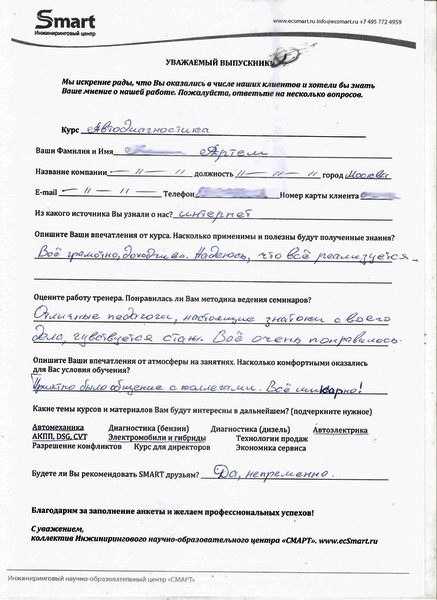 Smart
Инжиниринговый центр
www.ecsmart.ru info@ecsmart.ru +7 495 772 4959
УВАЖАЕМЫЙ ВЫПУСКНИК
Мы искренне рады, что Вы оказались в числе наших клиентов и хотели бы знать
Ваше мнение о нашей работе. Пожалуйста, ответьте на несколько вопросов.
Курс Автодиагностика
Ваши Фамилия и Имя Артем
Название компании — // — // — должность // — // — город Москва
E-mail — // — // — Телефон Номер карты клиента
Из какого источника Вы узнали о нас? интернет
Опишите Ваши впечатления от курса. Насколько применимы и полезны будут полученные знания?
Всё грамотно, доходчиво. Надеюсь, что всё реализуется
Оцените работу тренера. Понравилась ли Вам методика ведения семинаров?
Отличные педагоги, настоящие знатоки своего
дела, чувствуется стаж. Всё очень понравилось.
Опишите Ваши впечатления от атмосферы на занятиях. Насколько комфортными оказались
для Вас условия обучения?
Приятно было общение с коллегами. Всё шикарно!
Какие темы курсов и материалов Вам будут интересны в дальнейшем? (подчеркните нужное)
Автомеханика Диагностика (бензин) Диагностика (дизель) Автоэлектрика
АКПП, DSG, CVT Электромобили и гибриды Технологии продаж
Разрешение конфликтов Курс для директоров Экономика сервиса
Будете ли Вы рекомендовать SMART друзьям? Да, непременно.
Благодарим за заполнение анкеты и желаем профессиональных успехов!
С уважением,
коллектив Инжинирингового научно-образовательного центра «СМАРТ». www.ecSmart.ru
Инжиниринговый научно-образовательный центр «СМАРТ»